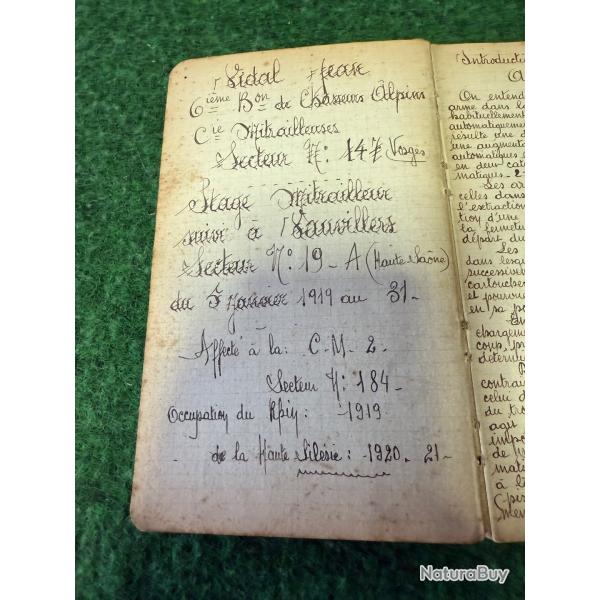 Vidal Jean
6ième Bon de Chasseurs Alpins
Cie Mitrailleuses
Secteur N: 147 Vosges
Stage Mitrailleur
suivi à Sauvillers
Secteur N: 19 - A (Haute Saône)
du 5 Janvier 1919 au 31-
Affecté à la: C.M-2.
Secteur N: 184-
Occupation du Rhin: -1919
- de la Haute Silésie: -1920. 21-
Introducti
On entend
arme dans l
habituellemen
automatiquemen
résulte une d
une augmenta
automatiques
en deux cat
matiques-2-
Les ar
celles dans
l'extraction
tion d'une
la fermetu
départ du
Les
dans lesqu
successive
cartouches
et pourvu
en sa po
chargemen
coup, pr
détermi
contrai
celui d
du tro
aqu
impo
de
mati
à l
NaturaBuy